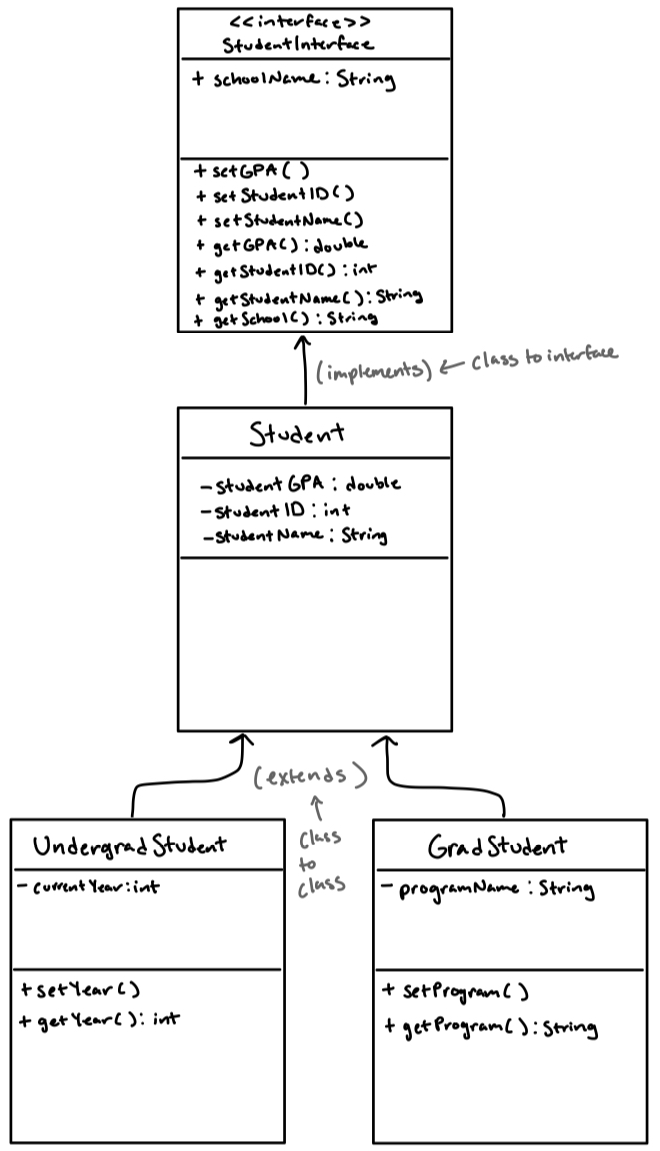 <<interface>>
StudentInterface
+ schoolName: String
+ setGPA( )
+ setStudentID()
+ setStudentName()
+ getGPA(): double
+ getStudentID(): int
+ getStudentName(): String
+ getSchool(): String
(implements) ← class to interface
Student
- studentGPA : double
- studentID : int
- studentName : String
(extends)
↑
class
to
class
UndergradStudent
- currentYear: int
+ setYear()
+ getYear(): int
GradStudent
- programName : String
+ setProgram()
+ getProgram(): String